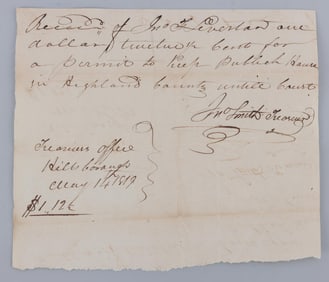 Received of Jno F. Everton one
dollar twelve Cents for
a permit to keep Publick House
in Highland County until Court
Jno Smith Treasurer
Treasurers Office
Hillsborough
May 14th 1819
$1.12c